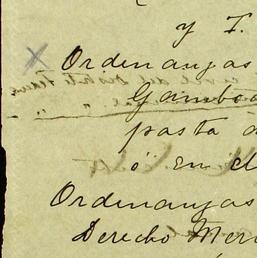 y T.
Ordenanzas
Gamboa
pasta d
ó en el
Ordenanzas
Derecho Mer